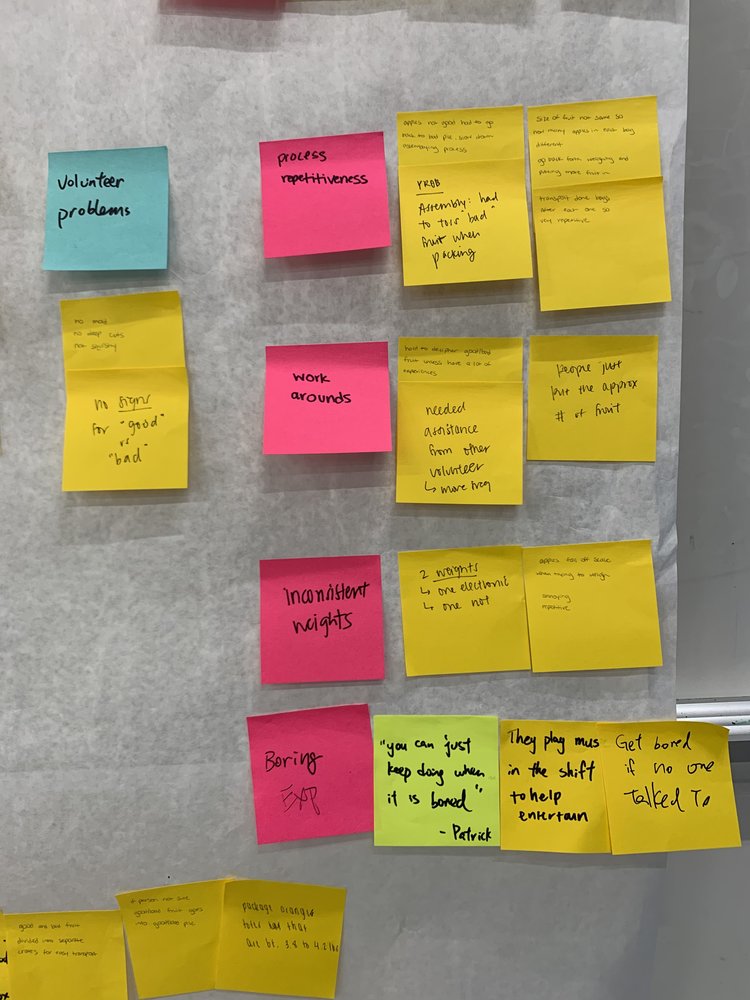 Volunteer
problems
no mold
no deep cuts
not squishy
no signs
for "good"
vs
"bad"
process
repetitiveness
apples not good had to go
back to bad pile, slow down
PROB
Assembly: had
to toss "bad"
fruit when
packing
Size of fruit not same so
how many apples in each bag
different
go back forth weighing and
putting more fruit in
transport done bags
after each one so
very repetitive
work
arounds
hard to decipher good/bad
fruit unless have a lot of
experiences
needed
assistance
from other
volunteer
↳ more freq
People just
put the approx
# of fruit
inconsistent
weights
2 weights
↳ one electronic
↳ one not
apples fall off scale
when trying to weigh
annoying
repetitive
Boring
EXP
"you can just
keep doing when
it is bored"
- Patrick
They play mus
in the shift
to help
entertain
Get bored
if no one
Talked To
good and bad fruit
divided into separate
crates for easy transport
if person not sure
good/bad fruit goes
into good/bad pile
package oranges
into bag that
are bt. 3.8 to 4.2 lbs